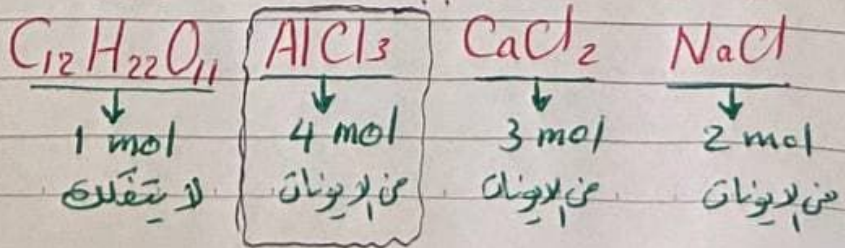 C₁₂H₂₂O₁₁ AlCl₃ CaCl₂ NaCl
1 mol 4 mol 3 mol 2 mol
لا يتفكك من الايونات من الايونات من الايونات